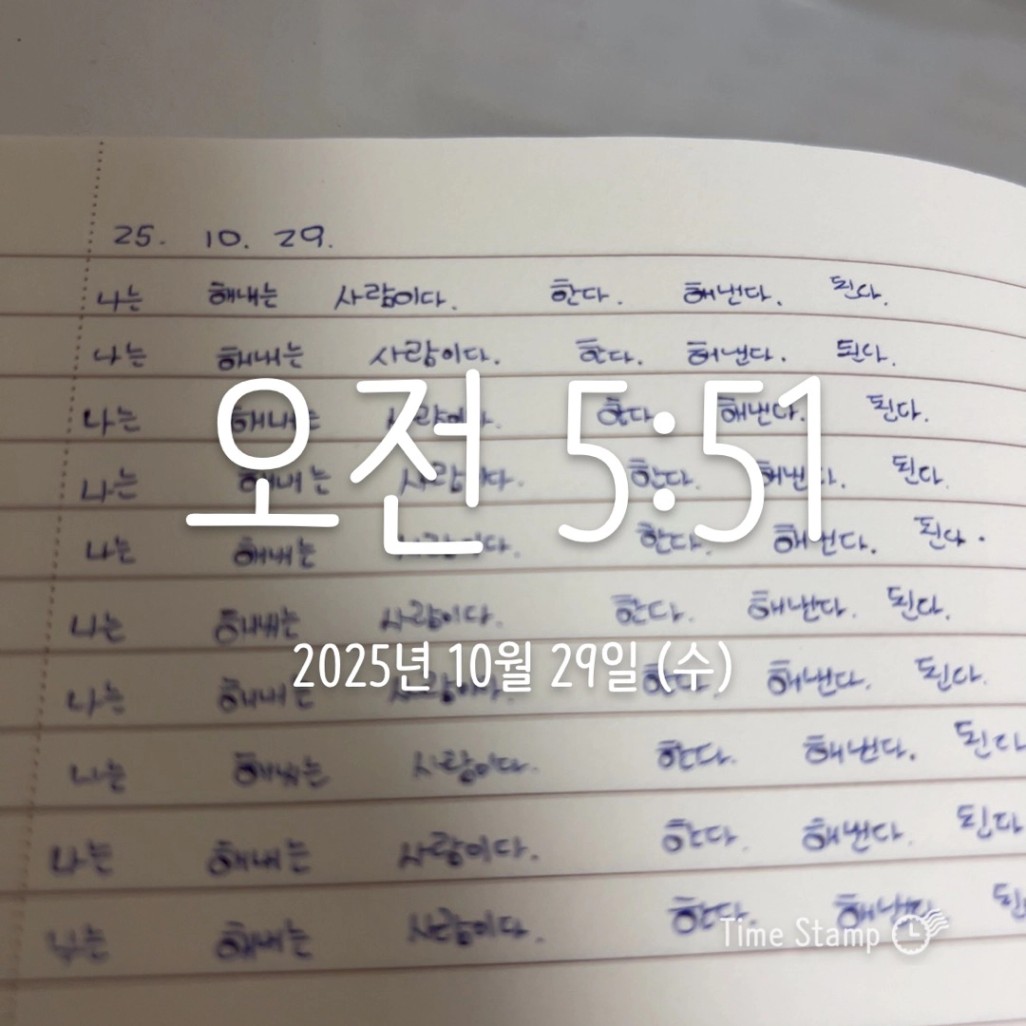 25. 10. 29.
나는 해내는 사람이다. 한다. 해낸다. 된다.
나는 해내는 사람이다. 한다. 해낸다. 된다.
나는 해내는 사람이다. 한다. 해낸다. 된다.
오전 5:51
나는 해내는 사람이다. 한다. 해낸다. 된다.
나는 해내는 사람이다. 한다. 해낸다. 된다.
나는 해내는 사람이다. 한다. 해낸다. 된다.
2025년 10월 29일 (수)
나는 해내는 사람이다. 한다. 해낸다. 된다.
나는 해내는 사람이다. 한다. 해낸다. 된다
나는 해내는 사람이다. 한다. 해낸다. 된다
나는 해내는 사람이다. 한다. 해낸다
Time Stamp